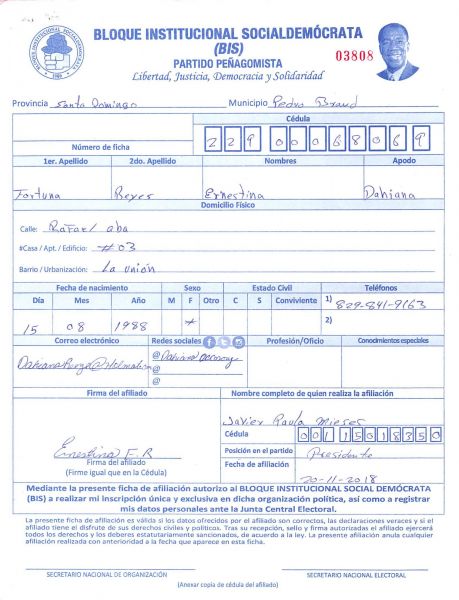 BLOQUE INSTITUCIONAL SOCIALDEMÓCRATA
(BIS)
03808
PARTIDO PEÑAGOMISTA
Libertad, Justicia, Democracia y Solidaridad
Provincia Santo Domingo Municipio Pedro Brand
Cédula
Número de ficha 229 0006806 9
1er. Apellido 2do. Apellido Nombres Apodo
Fortuna Reyes Ernestina Dahiana
Domicilio Físico
Calle: Rafael aba
#Casa / Apt. / Edificio: #03
Barrio / Urbanización: La unión
Fecha de nacimiento Sexo Estado Civil Teléfonos
Día Mes Año M F Otro C S Conviviente 1) 829-841-9163
15 08 1988 x 2)
Correo electrónico Redes sociales Profesión/Oficio Conocimientos especiales
@
@
@
Firma del afiliado Nombre completo de quien realiza la afiliación
Javier Paula Mieses
Cédula
001 1501835 0
Ernestina F. R Posición en el partido Presidente
Firma del afiliado
(Firme igual que en la Cédula)
Fecha de afiliación 20-11-2018
Mediante la presente ficha de afiliación autorizo al BLOQUE INSTITUCIONAL SOCIAL DEMÓCRATA
(BIS) a realizar mi inscripción única y exclusiva en dicha organización política, así como a registrar
mis datos personales ante la Junta Central Electoral.
La presente ficha de afiliación es válida si los datos ofrecidos por el afiliado son correctos, las declaraciones veraces y si el
afiliado tiene el disfrute de sus derechos civiles y políticos. Tras su recepción, sello y firma autorizados el afiliado ejercerá
todos los derechos y los deberes estatutariamente sancionados, de acuerdo a la ley. La presente afiliación anula cualquier
afiliación realizada con anterioridad a la fecha que aparece en esta ficha.
SECRETARIO NACIONAL DE ORGANIZACIÓN SECRETARIO NACIONAL ELECTORAL
(Anexar copia de cédula del afiliado)